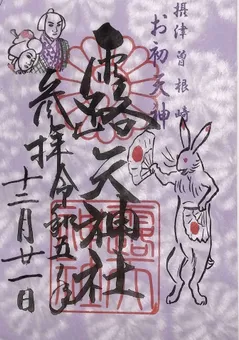 摂津曽根崎
お初天神
露天神社
参拝令和五年
十二月廿一日